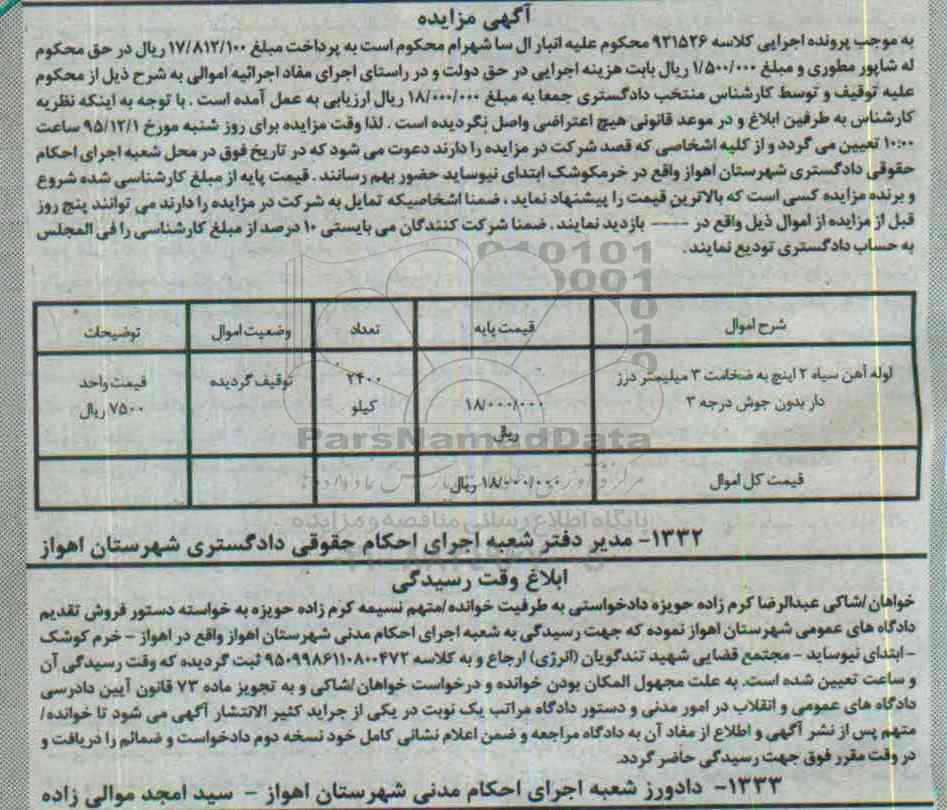 آگهی مزایده
به موجب پرونده اجرایی کلاسه ۹۲۱۵۲۶ محکوم علیه انبار ال سا شهرام محکوم است به پرداخت مبلغ ۱۷/۸۱۲/۱۰۰ ریال در حق محکوم
له شاپور مطوری و مبلغ ۱/۵۰۰/۰۰۰ ریال بابت هزینه اجرایی در حق دولت و در راستای اجرای مفاد اجرائیه اموالی به شرح ذیل از محکوم
علیه توقیف و توسط کارشناس منتخب دادگستری جمعا به مبلغ ۱۸/۰۰۰/۰۰۰ ریال ارزیابی به عمل آمده است . با توجه به اینکه نظریه
کارشناس به طرفین ابلاغ و در موعد قانونی هیچ اعتراضی واصل نگردیده است . لذا وقت مزایده برای روز شنبه مورخ ۹۵/۱۲/۱ ساعت
۱۰:۰۰ تعیین می گردد و از کلیه اشخاصی که قصد شرکت در مزایده را دارند دعوت می شود که در تاریخ فوق در محل شعبه اجرای احکام
حقوقی دادگستری شهرستان اهواز واقع در خرمکوشک ابتدای نیوساید حضور بهم رسانند . قیمت پایه از مبلغ کارشناسی شده شروع
و برنده مزایده کسی است که بالاترین قیمت را پیشنهاد نماید ، ضمنا اشخاصیکه تمایل به شرکت در مزایده را دارند می توانند پنج روز
قبل از مزایده از اموال ذیل واقع در ---- بازدید نمایند . ضمنا شرکت کنندگان می بایستی ۱۰ درصد از مبلغ کارشناسی را فی المجلس
به حساب دادگستری تودیع نمایند .
شرح اموال قیمت پایه تعداد وضعیت اموال توضیحات
لوله آهن سیاه ۲ اینچ به ضخامت ۳ میلیمتر درز ۲۴۰۰ توقیف گردیده قیمت واحد
دار بدون جوش درجه ۳ ۱۸/۰۰۰/۰۰۰ کیلو ۷۵۰۰ ریال
ریال
ParsNamadData
قیمت کل اموال ۱۸/۰۰۰/۰۰۰ ریال
پایگاه اطلاع رسانی مناقصه و مزایده
۱۳۳۲- مدیر دفتر شعبه اجرای احکام حقوقی دادگستری شهرستان اهواز
ابلاغ وقت رسیدگی
خواهان/شاکی عبدالرضا کرم زاده حویزه دادخواستی به طرفیت خوانده/متهم نسیمه کرم زاده حویزه به خواسته دستور فروش تقدیم
دادگاه های عمومی شهرستان اهواز نموده که جهت رسیدگی به شعبه اجرای احکام مدنی شهرستان اهواز واقع در اهواز - خرم کوشک
- ابتدای نیوساید - مجتمع قضایی شهید تندگویان (انرژی) ارجاع و به کلاسه ۹۵۰۹۹۸۶۱۱۰۸۰۰۴۷۲ ثبت گردیده که وقت رسیدگی آن
و ساعت تعیین شده است. به علت مجهول المکان بودن خوانده و درخواست خواهان/شاکی و به تجویز ماده ۷۳ قانون آیین دادرسی
دادگاه های عمومی و انقلاب در امور مدنی و دستور دادگاه مراتب یک نوبت در یکی از جراید کثیر الانتشار آگهی می شود تا خوانده/
متهم پس از نشر آگهی و اطلاع از مفاد آن به دادگاه مراجعه و ضمن اعلام نشانی کامل خود نسخه دوم دادخواست و ضمائم را دریافت و
در وقت مقرر فوق جهت رسیدگی حاضر گردد.
۱۳۳۳- دادورز شعبه اجرای احکام مدنی شهرستان اهواز - سید امجد موالی زاده